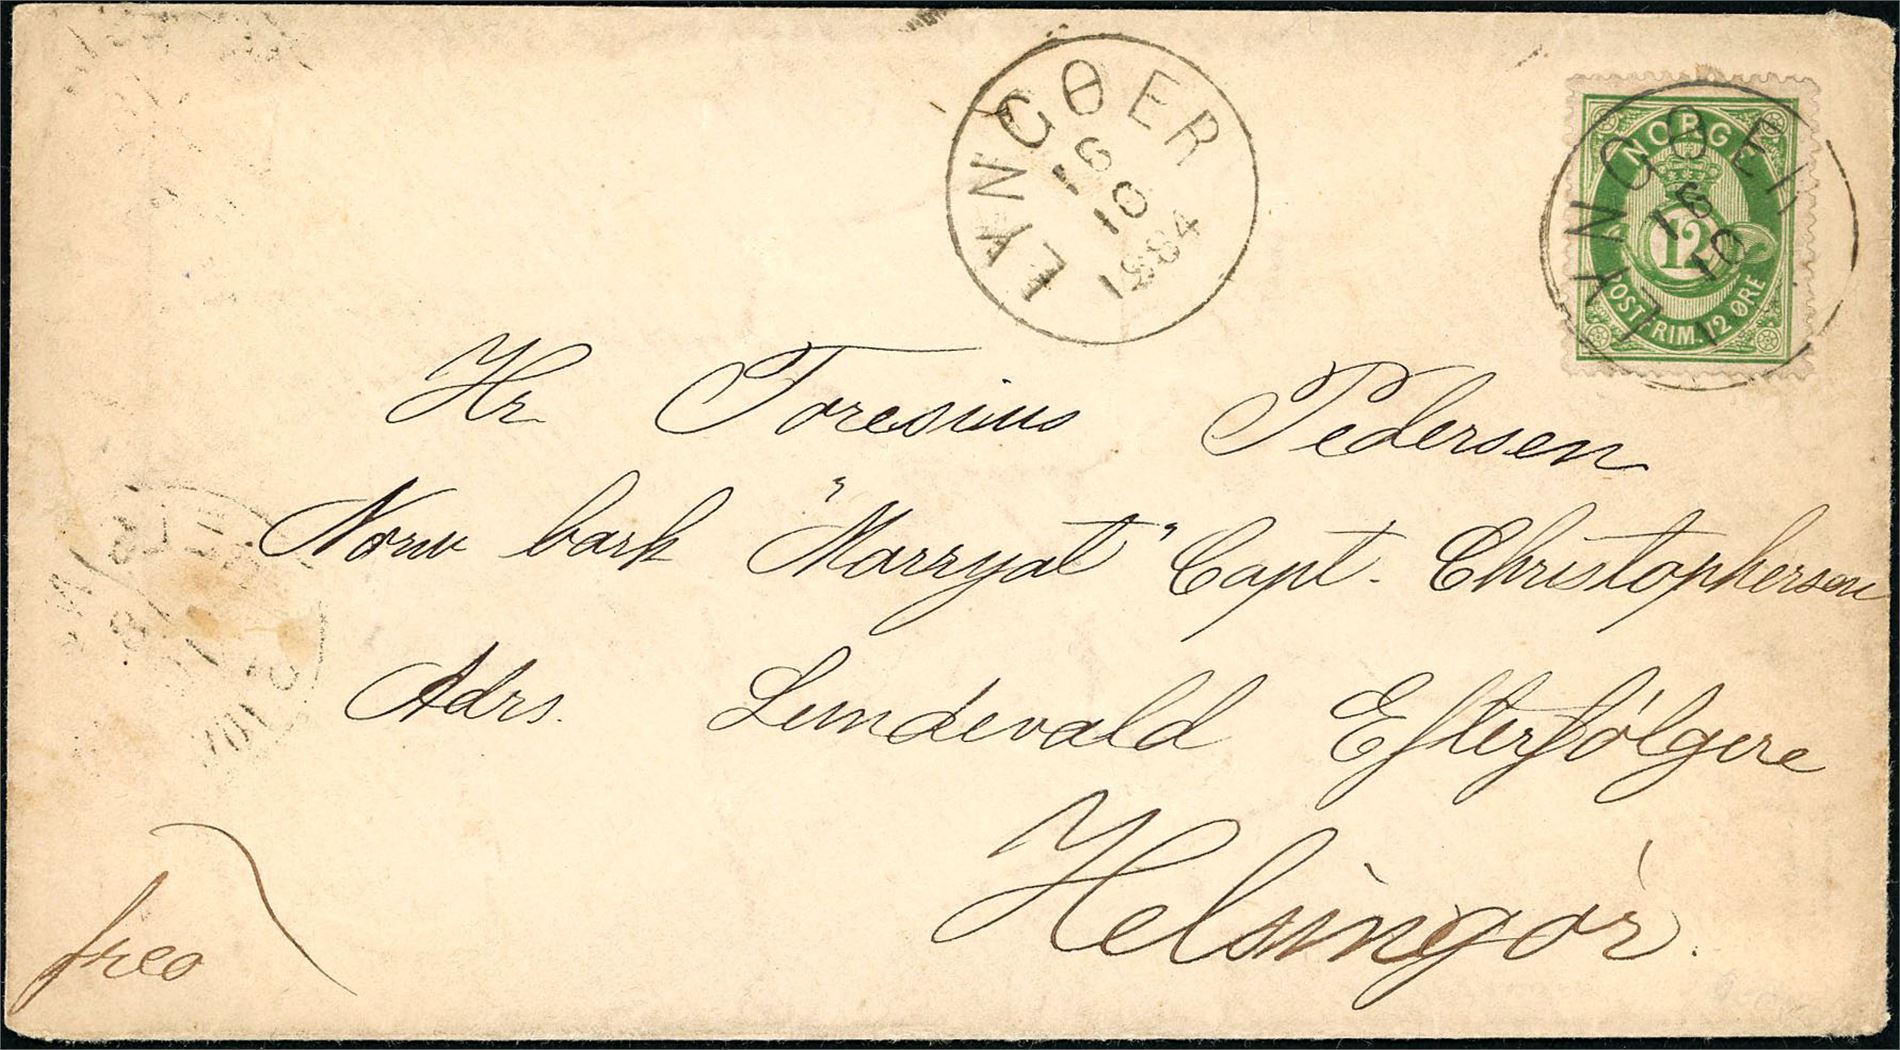 LYNGØER
16
10
1884
NORGE
12
POSTFRIM. 12 ØRE
LYNGØER
16
10
Hr Toresius Pedersen
Norw bark "Marryat" Capt. Christophersen
Adrs. Lundevald Efterfölgere
Helsingör.
frco